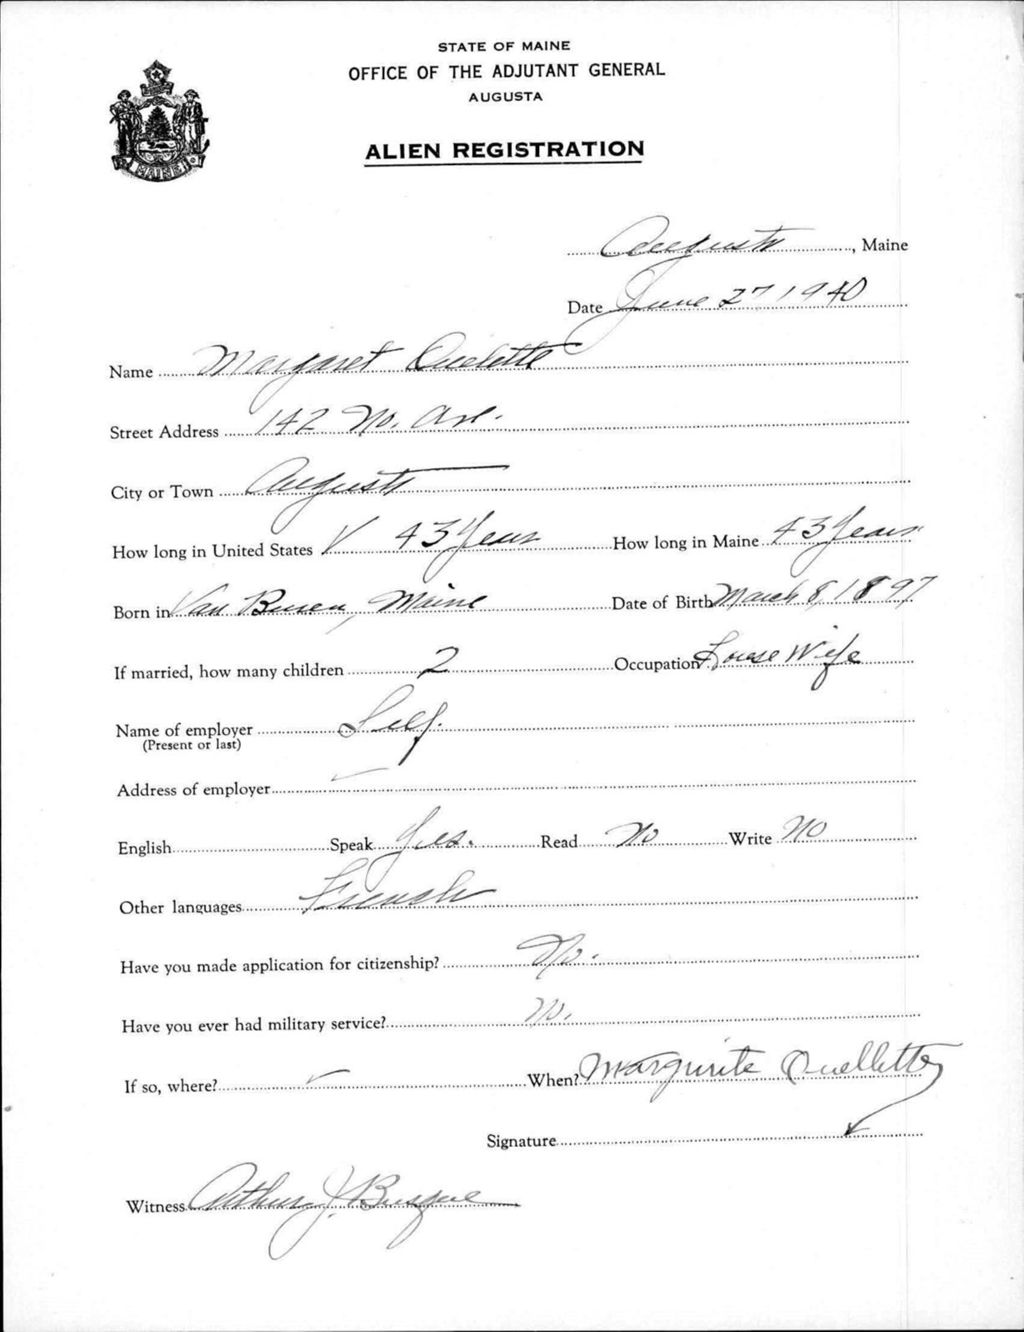 STATE OF MAINE
OFFICE OF THE ADJUTANT GENERAL
AUGUSTA
ALIEN REGISTRATION
MAINE
Augusta, Maine
Date June 27 1940
Name Margaret Ouelette
Street Address 142 No. Avl.
City or Town Augusta
How long in United States 43 Years How long in Maine 43 Years
Born in Van Buren, Maine Date of Birth March 8, 1897
If married, how many children 2 Occupation House Wife
Name of employer Self.
(Present or last)
Address of employer
English Speak Yes. Read No Write No
Other languages French
Have you made application for citizenship? No.
Have you ever had military service? No.
If so, where? When? Margurite Ouellette
Signature
Witness Arthur J. Busque